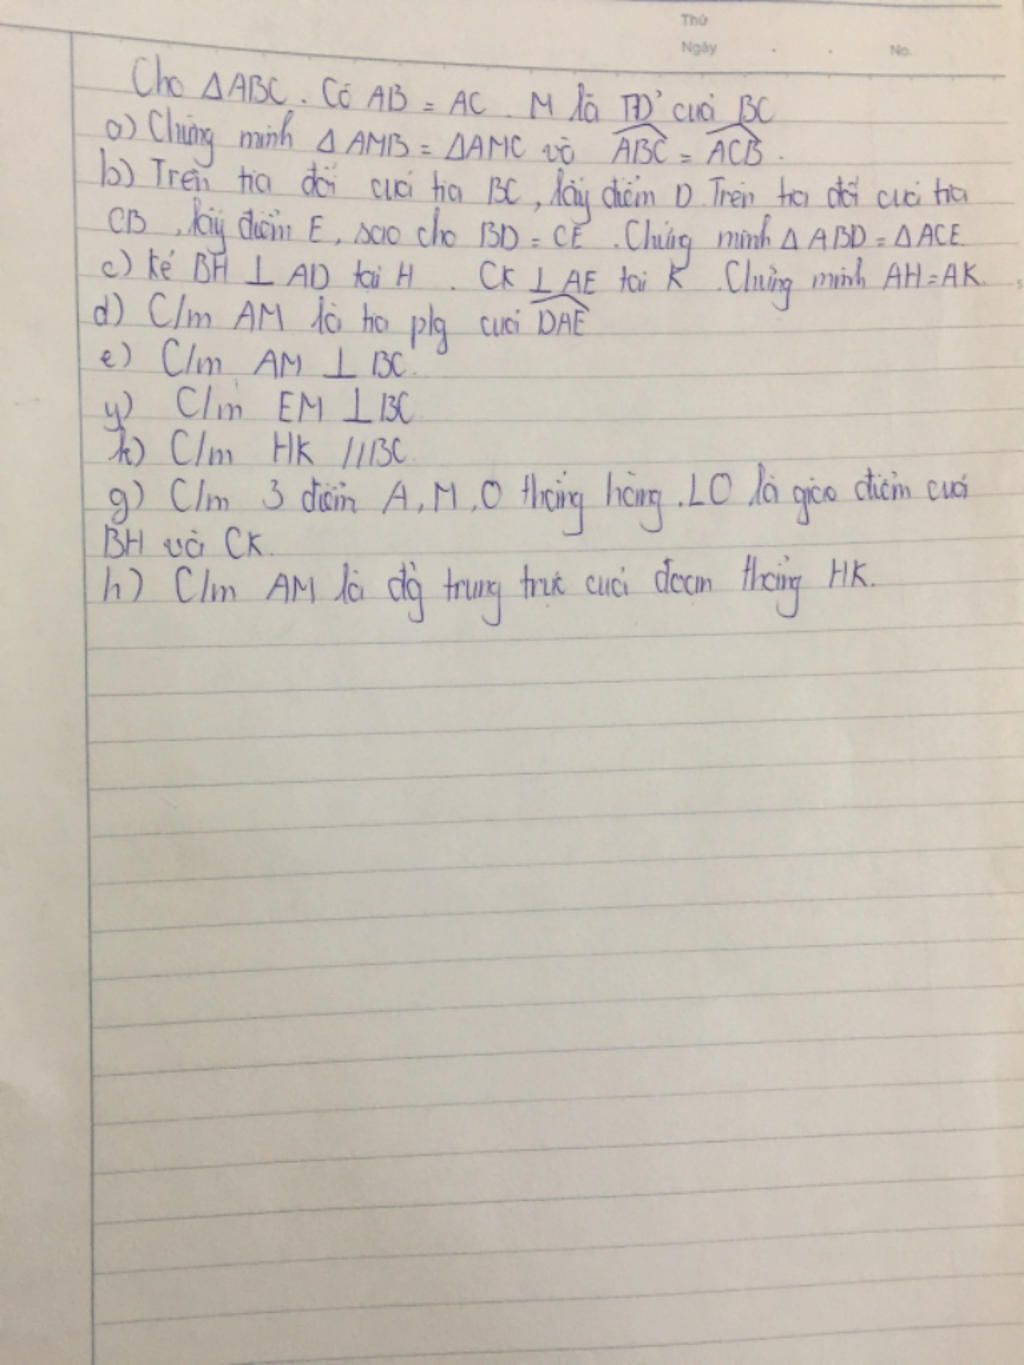 Thứ
Ngày . . No.
Cho ΔABC. Có AB = AC. M là TĐ' của BC
a) Chứng minh ΔAMB = ΔAMC và ABC = ACB.
b) Trên tia đối của tia BC, lấy điểm D. Trên tia đối của tia
CB, lấy điểm E, sao cho BD = CE. Chứng minh ΔABD = ΔACE
c) kẻ BH ⊥ AD tại H. CK ⊥ AE tại K. Chứng minh AH = AK.
d) C/m AM là tia p/g của DAE
e) C/m AM ⊥ BC.
y) C/m EM ⊥ BC
k) C/m HK // BC
g) C/m 3 điểm A, M, O thẳng hàng. LO là giao điểm của
BH và CK.
h) C/m AM là đg trung trực của đoạn thẳng HK.